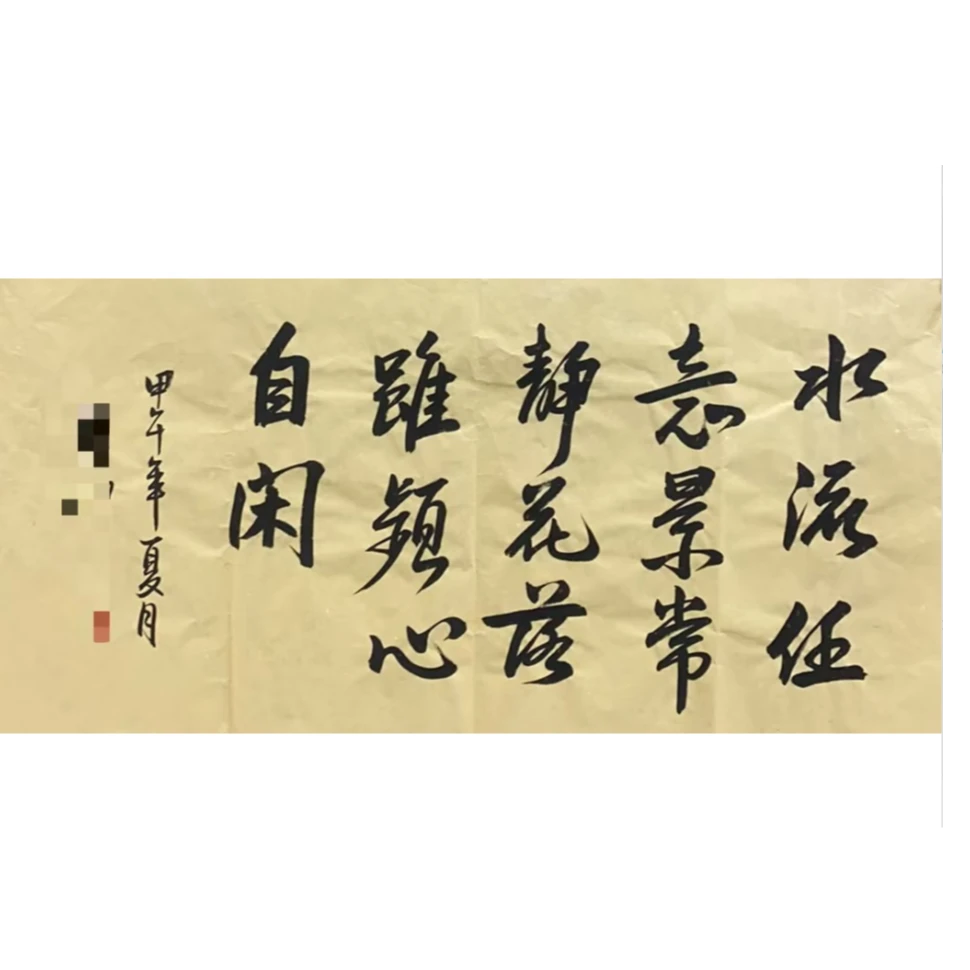 水流任
意景常
静花落
雖頻心
自闲
甲午年夏月